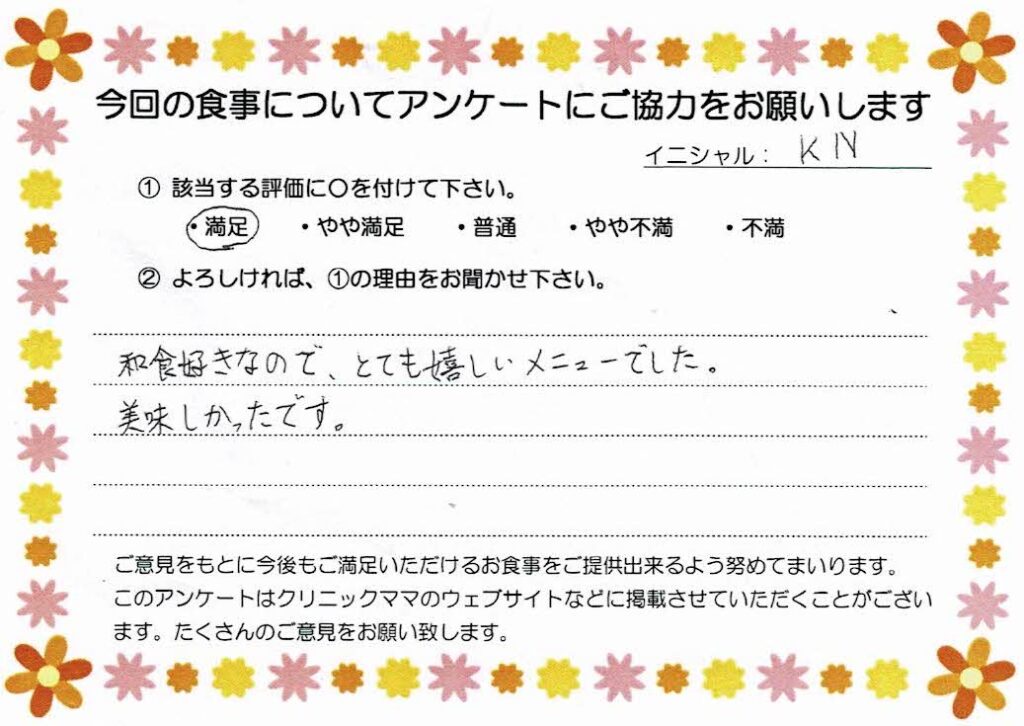 今回の食事についてアンケートにご協力をお願いします
イニシャル： KN
① 該当する評価に○を付けて下さい。
・満足 ・やや満足 ・普通 ・やや不満 ・不満
② よろしければ、①の理由をお聞かせ下さい。
和食好きなので、とても嬉しいメニューでした。
美味しかったです。
ご意見をもとに今後もご満足いただけるお食事をご提供出来るよう努めてまいります。
このアンケートはクリニックママのウェブサイトなどに掲載させていただくことがござい
ます。たくさんのご意見をお願い致します。